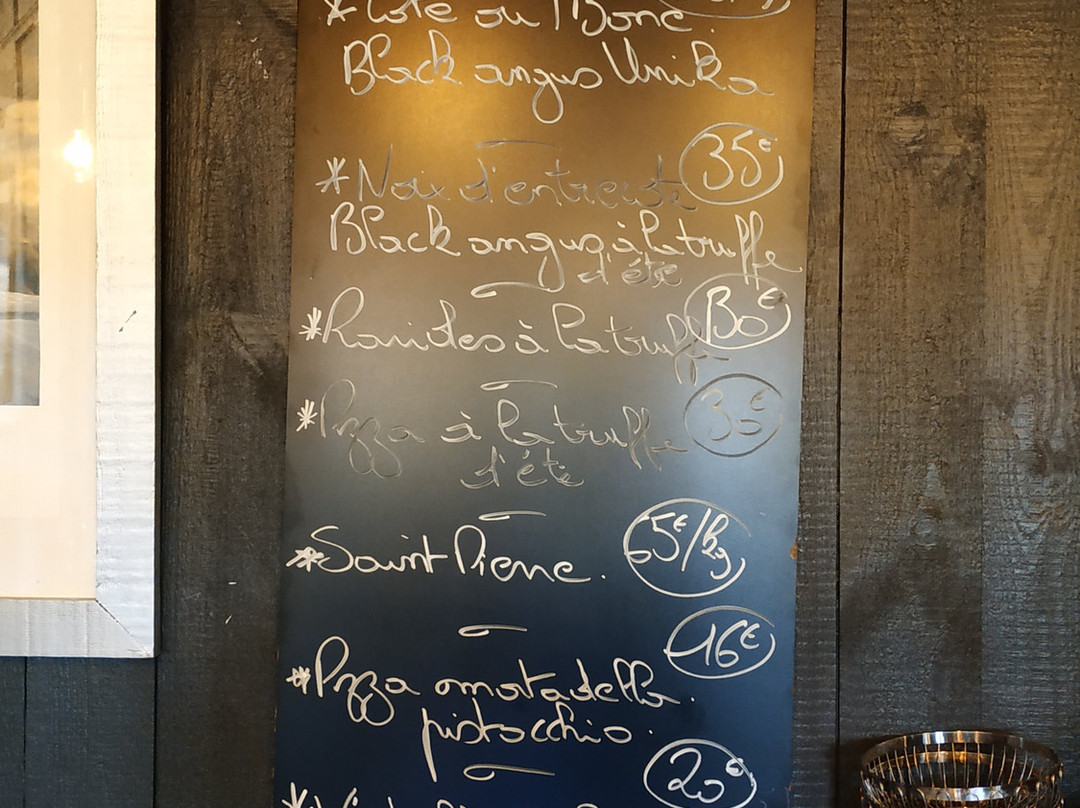 *Côte ou Bone.
Black angus Unika
*Noix d'entrecote 35€
Black angus à la truffe
d'été
*Ravioles à la truffe 30€
*Pizza à la truffe 30€
d'été
*Saint Pierre. 65€/kg
16€
*Pizza mortadella.
pistacchio.
20€